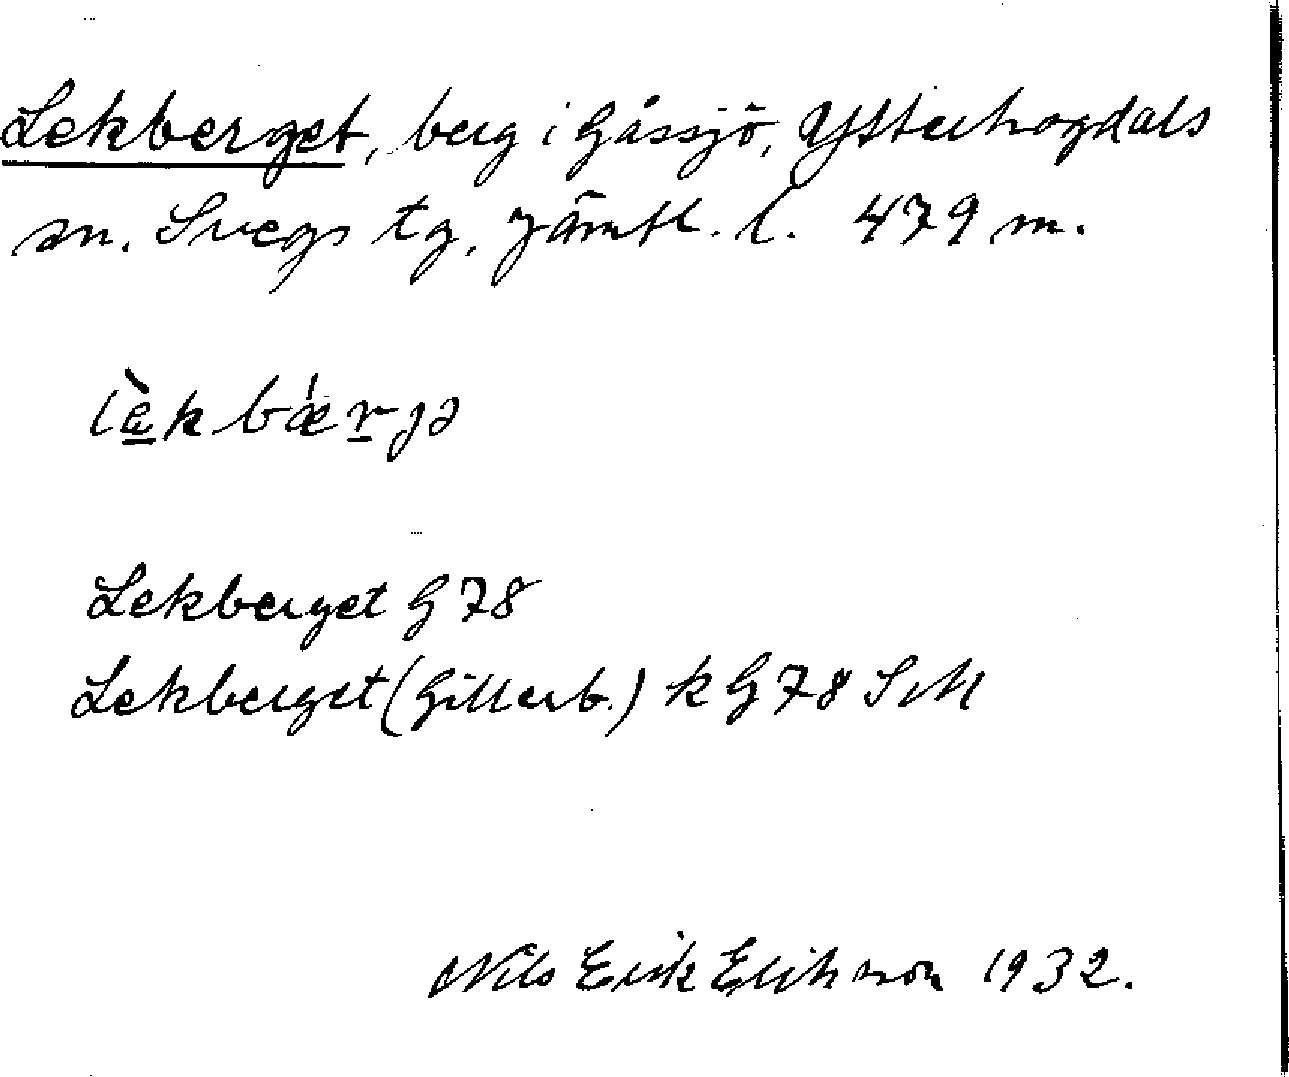 Lekberget, berg i Gåssjö, Ytterhogdals
sn. Svegs tg, Jämtl. l. 479 m.
lè̱kbǽṟjə
Lekberget G 78
Lekberget (Gillerb.) k G 78 SvM
Nils Erik Elihnson 1932.